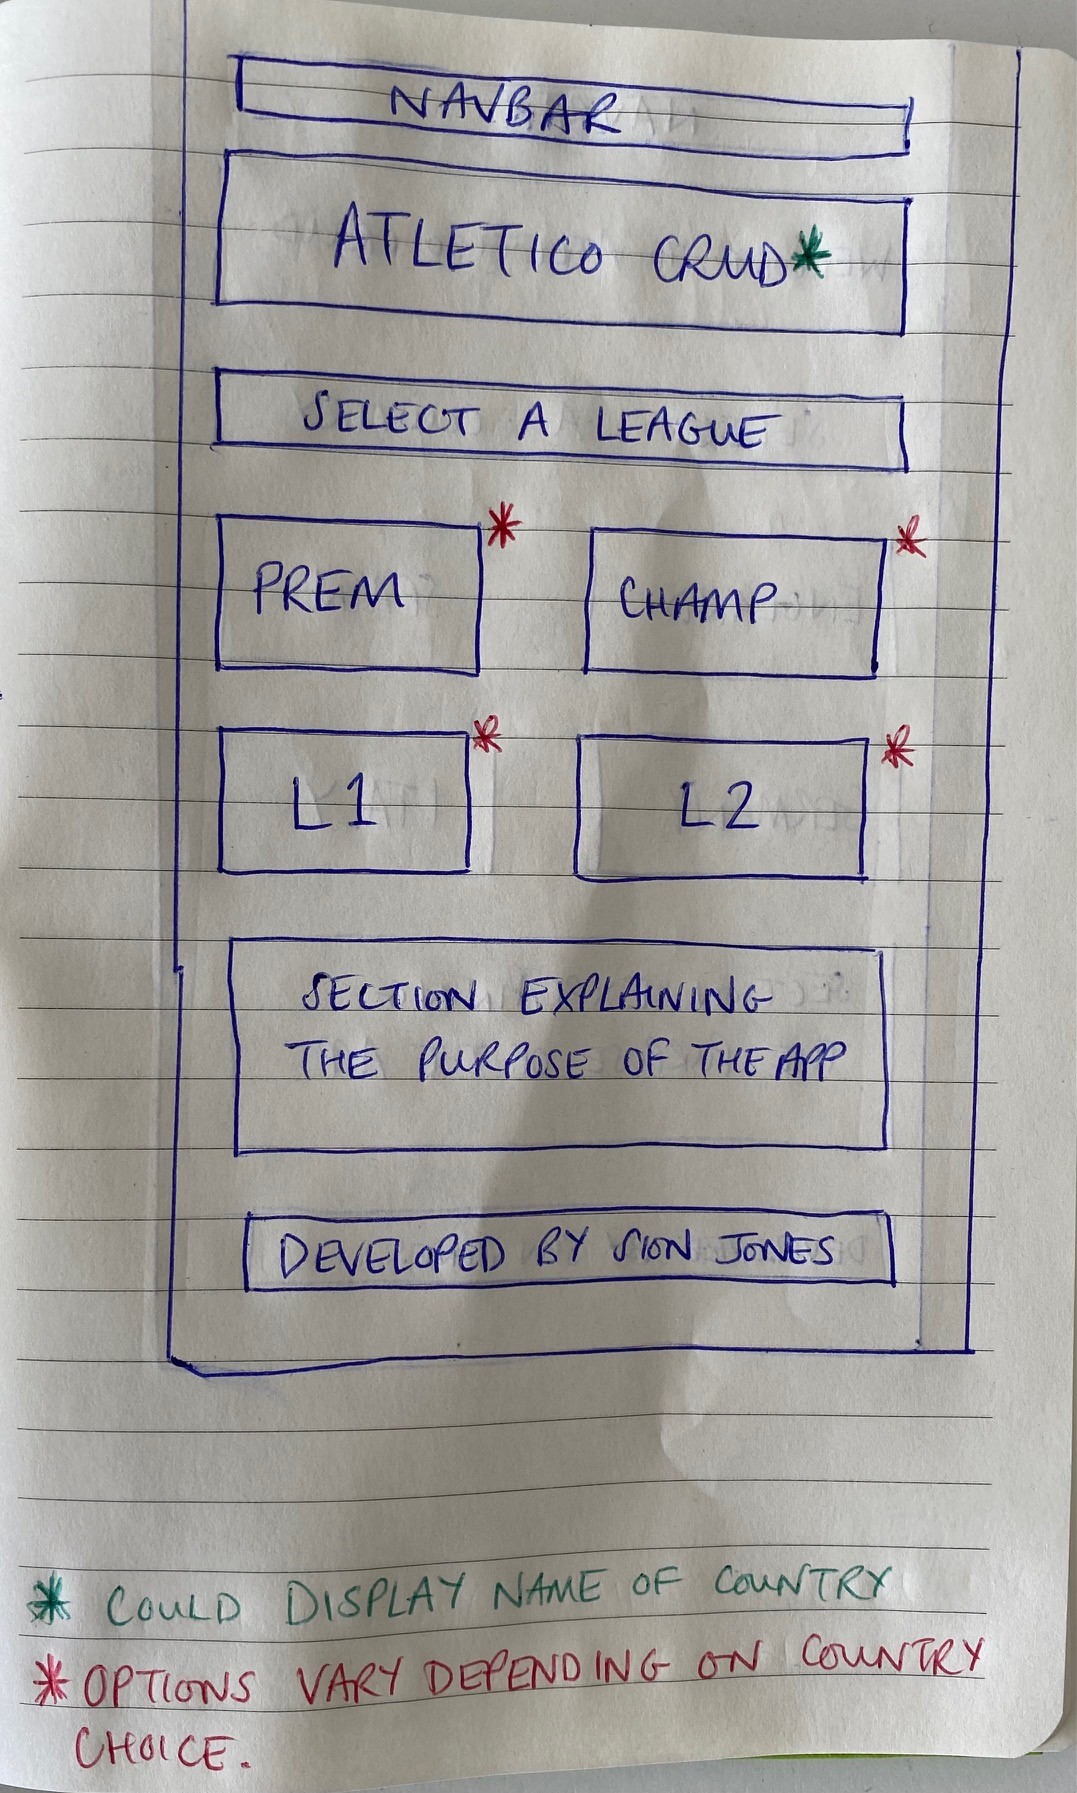 NAVBAR
ATLETICO CRUD*
SELECT A LEAGUE
PREM *
CHAMP *
L1 *
L2 *
SECTION EXPLAINING
THE PURPOSE OF THE APP
DEVELOPED BY SION JONES
* COULD DISPLAY NAME OF COUNTRY
* OPTIONS VARY DEPENDING ON COUNTRY
CHOICE.